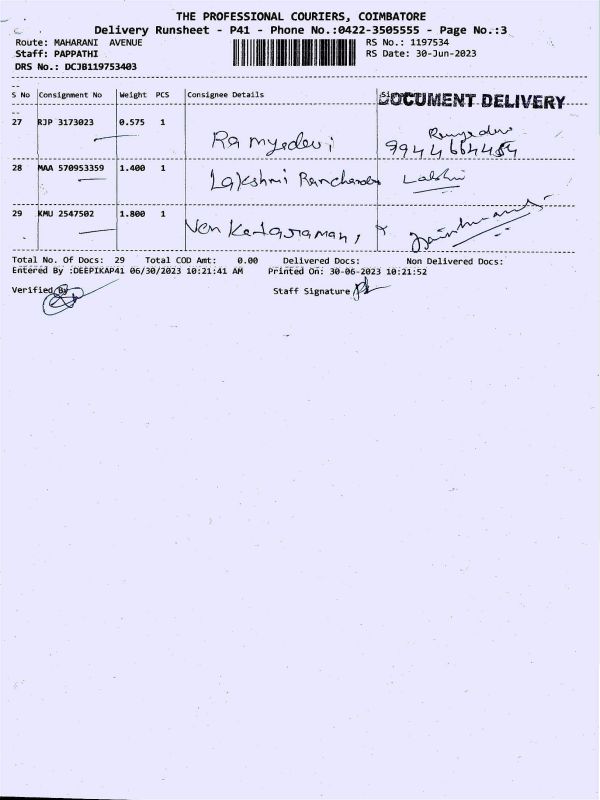 THE PROFESSIONAL COURIERS, COIMBATORE
Delivery Runsheet - P41 - Phone No.:0422-3505555 - Page No.:3
Route: MAHARANI AVENUE RS No.: 1197534
Staff: PAPPATHI RS Date: 30-Jun-2023
DRS No.: DCJB119753403
S No Consignment No Weight PCS Consignee Details
DOCUMENT DELIVERY
27 RJP 3173023 0.575 1 Ramyadevi Ramyadevi
9944664454
28 MAA 570953359 1.400 1 Lakshmi Ramchander Lakshmi
29 KMU 2547502 1.800 1 Venkataraman,
Total No. Of Docs: 29 Total COD Amt: 0.00 Delivered Docs: Non Delivered Docs:
Entered By :DEEPIKAP41 06/30/2023 10:21:41 AM Printed On: 30-06-2023 10:21:52
Verified By Staff Signature